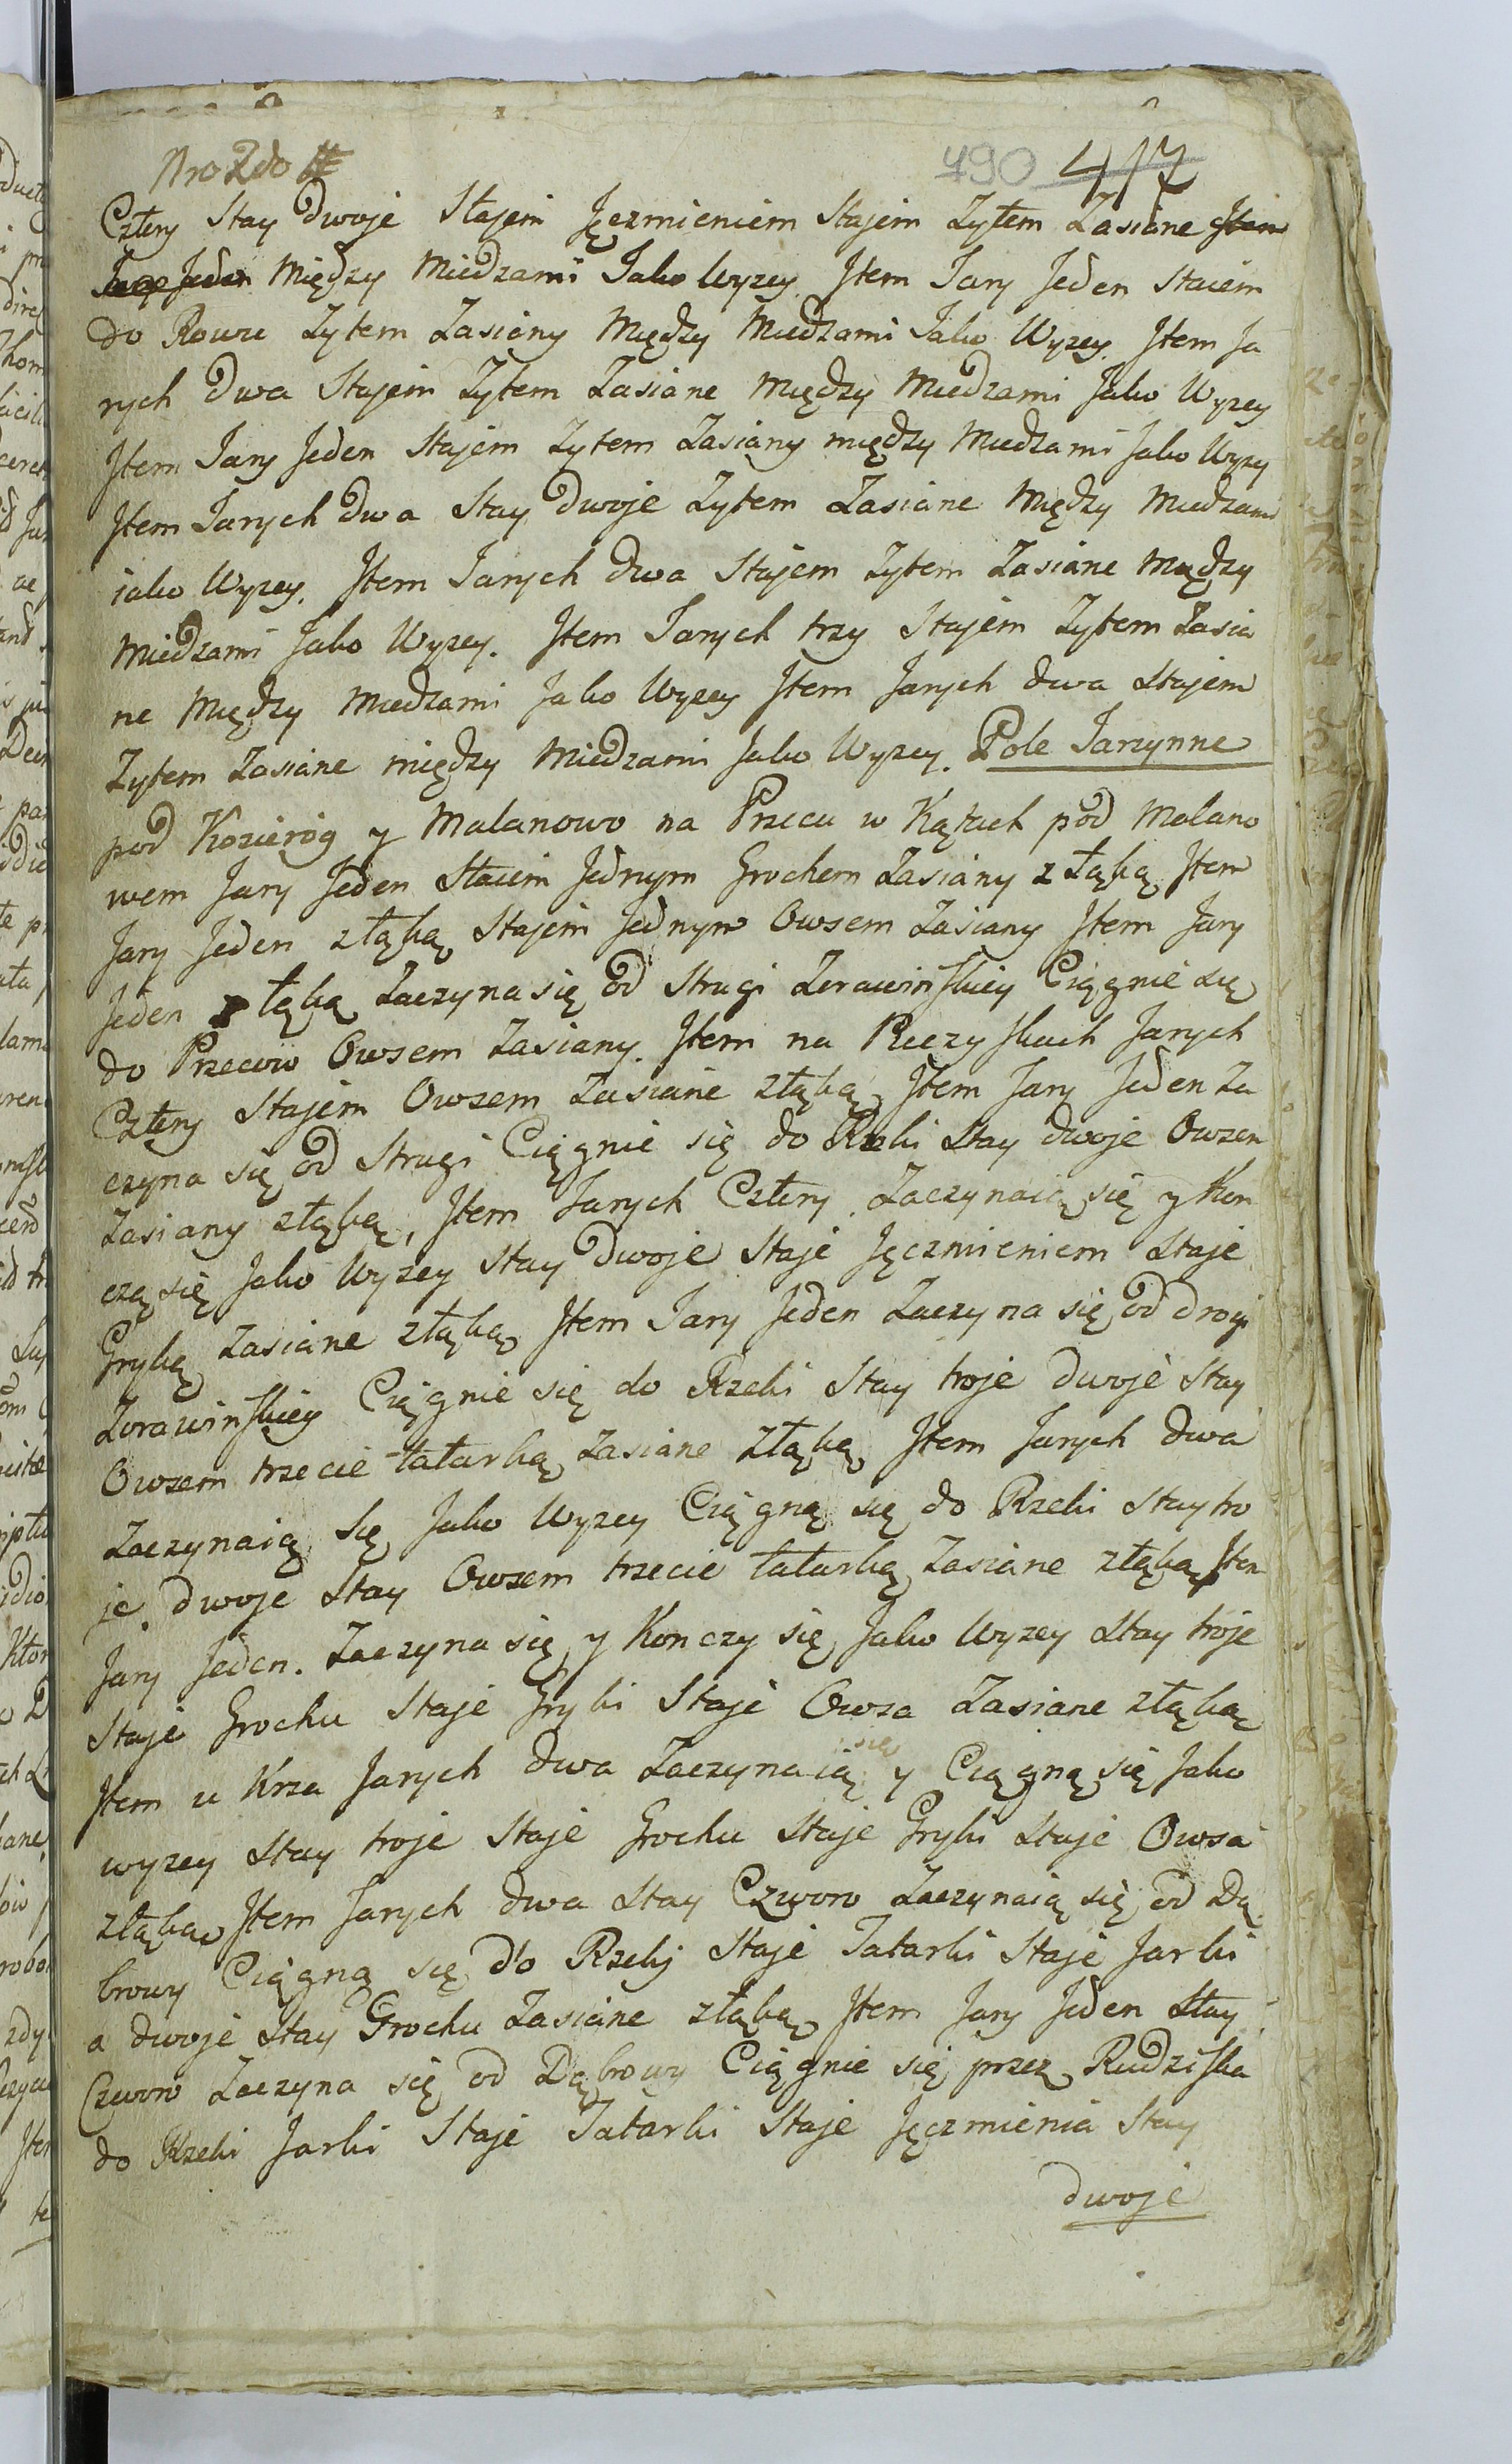 Nro 2do
490 417
Cztery Stay dwoje Stajem Jęczmieniem Stajem Zytem Zasiane Jtem
Jary Jeden Między Miedzami Jako Wyzey. Jtem Jary Jeden Staiem
do Rowu Zytem Zasiany Między Miedzami Jako Wyzey. Jtem Ja
rych dwa Stajem Zytem Zasiane Między Miedzami Jako Wyzey
Jtem Jary Jeden Stajem Zytem Zasiany między Miedzami Jako Wyzy
Jtem Jarych dwa Stay dwoje Zytem Zasiane Między Miedzami
iako Wyzey. Jtem Jarych dwa Stajem Zytem Zasiane Między
Miedzami Jako Wyzey. Jtem Jarych trzy Stajem Zytem Zasia
ne Między Miedzami Jako Wyzey Jtem Jarych dwa Stajem
Zytem Zasiane między Miedzami Jako Wyzey. Pole Jarzynne
pod Kozieróg y Malanowo na Przecu w Kątach pod Malano
wem Jary Jeden Staiem Jednym Grochem Zasiany z łąką Jtem
Jary Jeden złąką Stajem Jednym Owsem Zasiany Jtem Jary
Jeden z łąką Zaczyna się od Strugi Zerawińskiey Ciągnie się
do Przecow Owsem Zasiany. Jtem na Rzeczyskach Jarych
Cztery Stajem Owsem Zasiane złąką, Jtem Jary Jeden Za
czyna się od Strugi Ciągnie się do Rzeki Stay dwoje Owsem
Zasiany złąką, Jtem Jarych Cztery Zaczynaią się y Kon
czą się Jako Wyzey Stay dwoje Staje Jęczmieniem Staje
Gryką Zasiane złąką Jtem Jary Jeden Zaczyna się od drogi
Zorawińskiey Ciągnie się do Rzeki Stay troje dwoje Stay
Owsem trzecie tatarką Zasiane złąką Jtem Jarych dwa
Zaczynaią się Jako Wyzey Ciągną się do Rzeki Stay tro
je. dwoje Stay Owsem trzecie tatarką Zasiane złąką Jtem
Jary Jeden. Zaczyna się y Konczy się Jako Wyzey Stay troje
Staje Grochu Staje Gryki Staje Owsa Zasiane złąką
Jtem u Krza Jarych dwa Zaczynaią się y Ciągną się Jako
wyzey Stay troje Staje Grochu Staje Gryki Staje Owsa
złąką Jtem Jarych dwa Stay Czworo Zaczynaią się od Dą
browy Ciągną się do Rzeki Staje Tatarki Staje Jarki
a dwoje Stay Grochu Zasiane złąką Jtem Jary Jeden Stay
Czworo Zaczyna się od Dąbrowy Ciągnie się przez Rudziska
do Rzeki Jarki Staje Tatarki Staje Jęczmienia Stay
dwoje